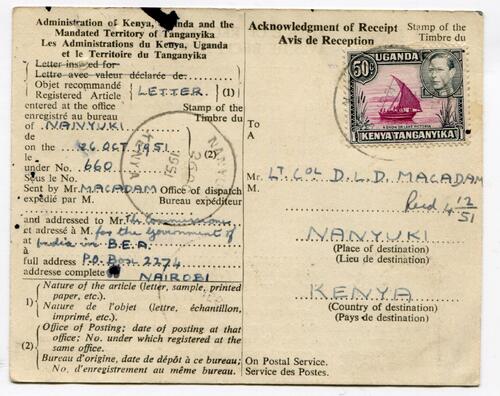 Administration of Kenya, Uganda and the
Mandated Territory of Tanganyika
Les Administrations du Kenya, Uganda
et le Territoire du Tanganyika
Letter insured for
Lettre avec valeur déclarée de:
Objet recommandé
Registered Article LETTER (1)
entered at the office Stamp of the
enregistré au bureau Timbre du
of NANYUKI
de
on the 26 OCT. 1951
le (2)
under No. 660
Sous le No.
Sent by Mr. MACADAM Office of dispatch
expédié par M. Bureau expéditeur
and addressed to Mr. the Commissioner
et adressé à M. for the Government of
at India in B.E.A.
à
full address P.O. Box 2274
addresse complete NAIROBI
1) Nature of the article (letter, sample, printed
paper, etc.).
Nature de l'objet (lettre, échantillon,
imprimé, etc.).
(2) Office of Posting; date of posting at that
office; No. under which registered at the
same office.
Bureau d'origine, date de dépôt à ce bureau;
No. d'enregistrement au même bureau.
NANYUKI
KENYA
1951
Acknowledgment of Receipt Stamp of the
Avis de Reception Timbre du
50c UGANDA
A DHOW ON LAKE VICTORIA
KENYA TANGANYIKA
To
A
Mr. LT COL D.L.D. MACADAM
M.
Recd 4 12/51
NANYUKI
(Place of destination)
(Lieu de destination)
KENYA
(Country of destination)
(Pays de destination)
On Postal Service.
Service des Postes.